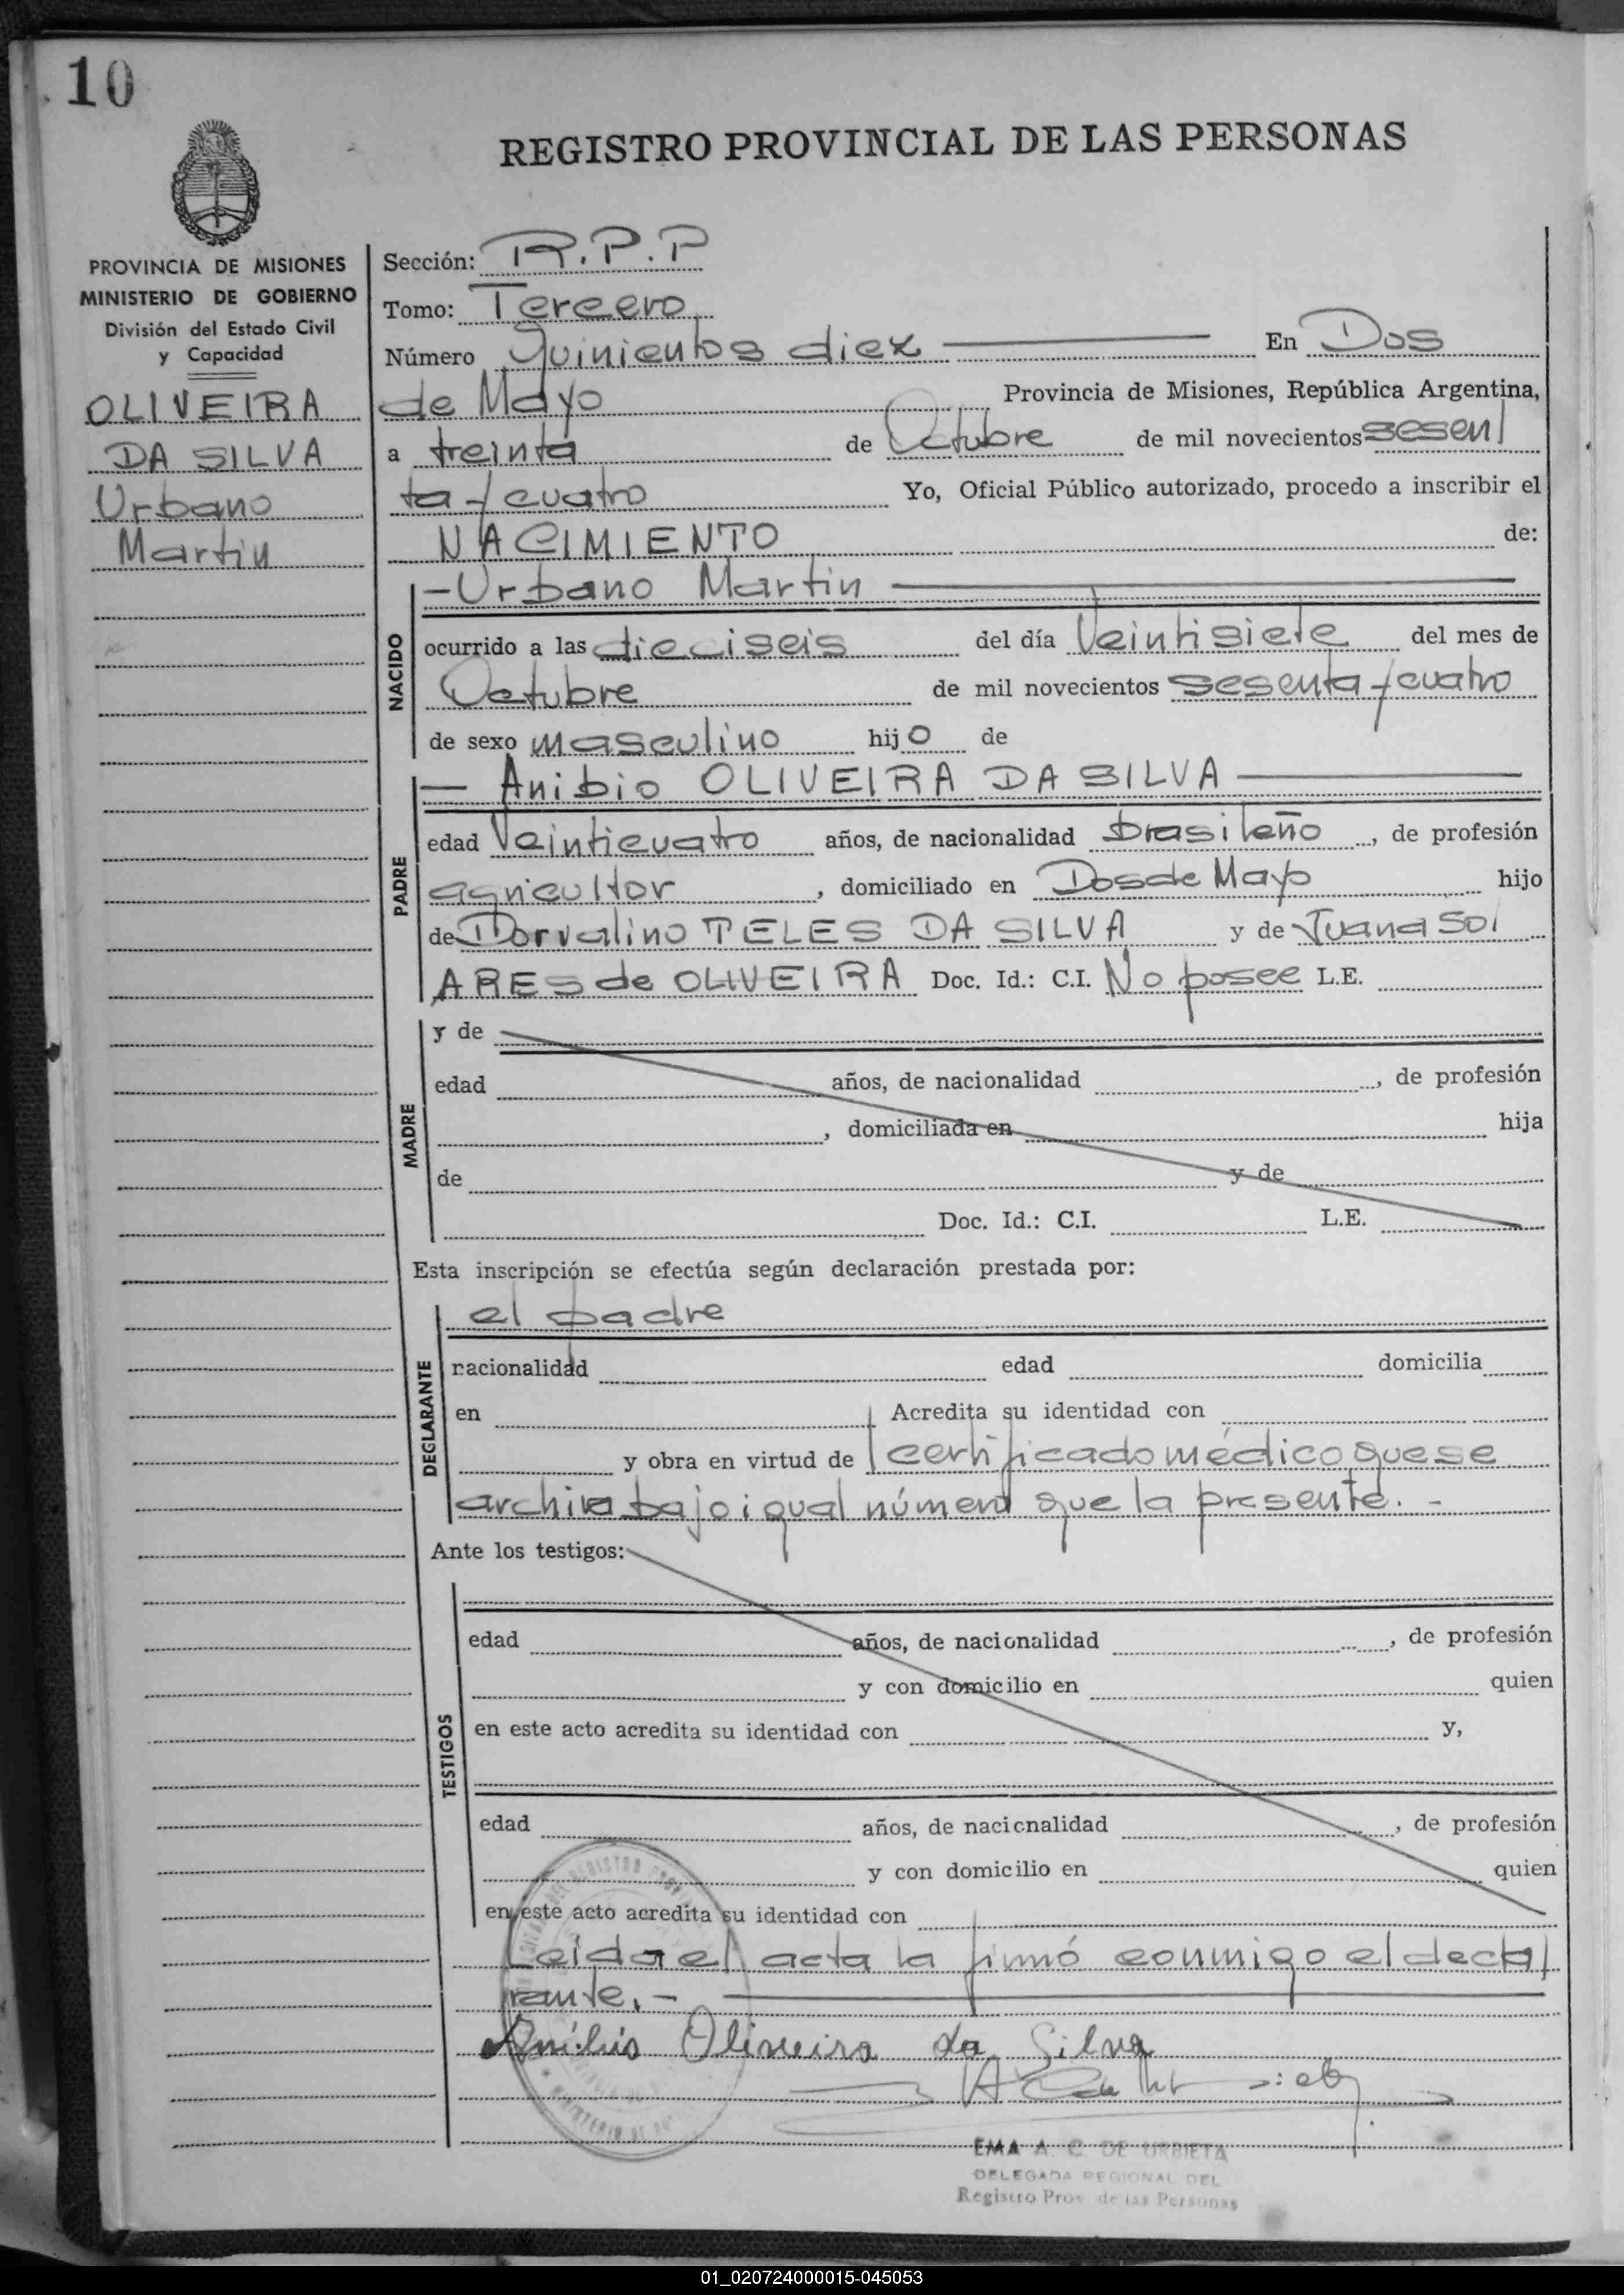 10
REGISTRO PROVINCIAL DE LAS PERSONAS
PROVINCIA DE MISIONES
MINISTERIO DE GOBIERNO
División del Estado Civil
y Capacidad
OLIVEIRA
DA SILVA
Urbano
Martin
Sección: R.P.P
Tomo: Tercero
Número Quinientos diez En Dos
de Mayo Provincia de Misiones, República Argentina,
a treinta de Octubre de mil novecientos sesen/
ta y cuatro Yo, Oficial Público autorizado, procedo a inscribir el
NACIMIENTO de:
NACIDO
-Urbano Martin
ocurrido a las dieciseis del día Veintisiete del mes de
Octubre de mil novecientos sesenta y cuatro
de sexo masculino hijo de
PADRE
— Anibio OLIVEIRA DA SILVA
edad Veinticuatro años, de nacionalidad brasileño, de profesión
agricultor, domiciliado en Dos de Mayo hijo
de Dorvalino TELES DA SILVA y de Juana SOL
ARES de OLIVEIRA Doc. Id.: C.I. No posee L.E.
MADRE
y de
edad años, de nacionalidad , de profesión
, domiciliada en hija
de y de
Doc. Id.: C.I. L.E.
Esta inscripción se efectúa según declaración prestada por:
DECLARANTE
el padre
nacionalidad edad domicilia
en Acredita su identidad con
y obra en virtud de certificado médico que se
archiva bajo igual número que la presente. -
Ante los testigos:
TESTIGOS
edad años, de nacionalidad , de profesión
y con domicilio en quien
en este acto acredita su identidad con y,
edad años, de nacionalidad , de profesión
y con domicilio en quien
en este acto acredita su identidad con
Leida el acta la firmó conmigo el decla/
rante. -
Anibio Oliveira da Silva
EMA A. C. DE URBIETA
DELEGADA REGIONAL DEL
Registro Prov de las Personas
01_020724000015-045053